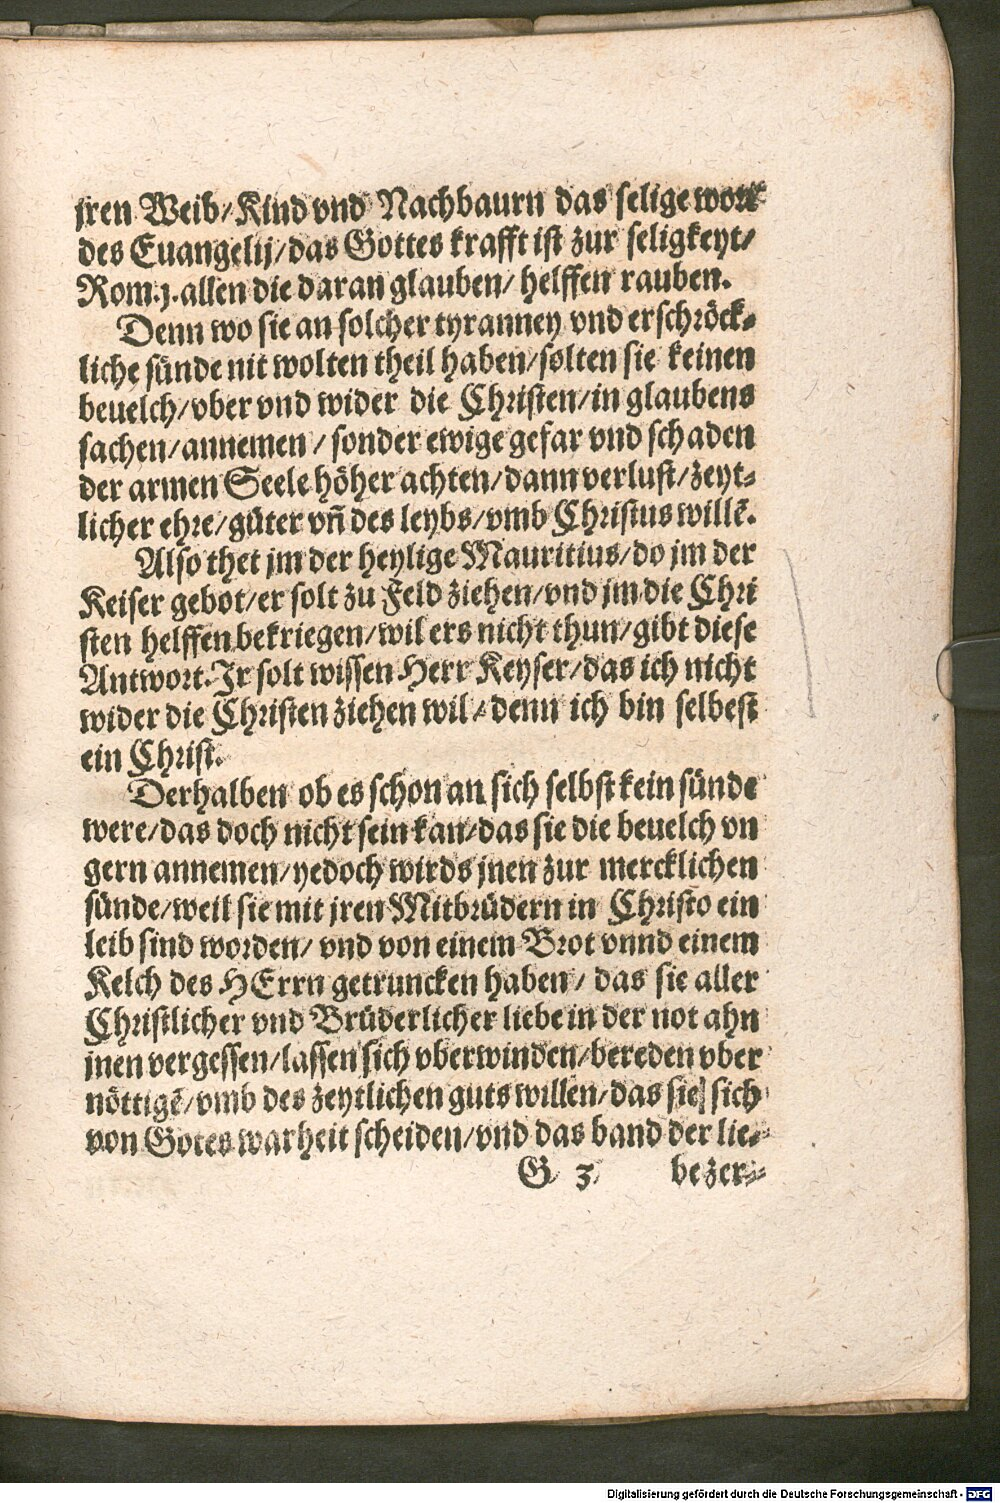 jren Weib/Kind vnd Nachbaurn das selige wort
des Euangelij/das Gottes krafft ist zur seligkeyt/
Rom.j.allen die daran glauben/helffen rauben.
Denn wo sie an solcher tyranney vnd erschröck-
liche sünde nit wolten theil haben/solten sie keinen
beuelch/vber vnd wider die Christen/in glaubens
sachen/annemen/sonder ewige gefar vnd schaden
der armen Seele höher achten/dann verlust/zeyt-
licher ehre/güter vñ des leybs/vmb Christus willē.
Also thet jm der heylige Mauritius/do jm der
Keiser gebot/er solt zu Feld ziehen/vnd jm die Chri
sten helffen bekriegen/wil ers nicht thun/gibt diese
Antwort.Ir solt wissen Herr Keyser/das ich nicht
wider die Christen ziehen wil/denn ich bin selbest
ein Christ.
Derhalben ob es schon an sich selbst kein sünde
were/das doch nicht sein kan/das sie die beuelch vn
gern annemen/yedoch wirds jnen zur mercklichen
sünde/weil sie mit jren Mitbrüdern in Christo ein
leib sind worden/vnd von einem Brot vnnd einem
Kelch des HErrn getruncken haben/das sie aller
Christlicher vnd Brüderlicher liebe in der not ahn
jnen vergessen/lassen sich vberwinden/bereden vber
nöttigē/vmb des zeytlichen guts willen/das sie sich
von Gotes warheit scheiden/vnd das band der lie-
G 3 be zer-
Digitalisierung gefördert durch die Deutsche Forschungsgemeinschaft - DFG